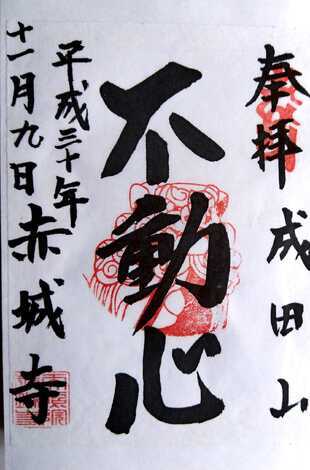 奉拝 成田山
不動心
平成三十年
十一月九日 赤城寺